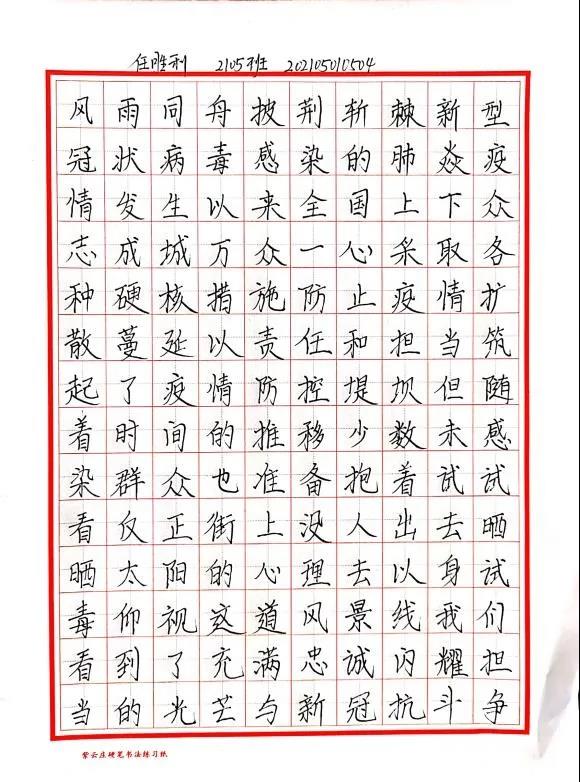 任胜利 2105班 202105010504
风雨同舟披荆斩棘新型
冠状病毒感染的肺炎疫
情发生以来全国上下众
志成城万众一心采取各
种硬核措施防止疫情扩
散蔓延以责任和担当筑
起了疫情防控堤坝但随
着时间的推移少数未感
染群众也准备抱着试试
看仅正街上没人出去晒
晒太阳的心理去以身试
毒仰视这道风景线我们
看到了充满忠诚闪耀担
当的光芒与新冠抗斗争
紫云庄硬笔书法练习纸